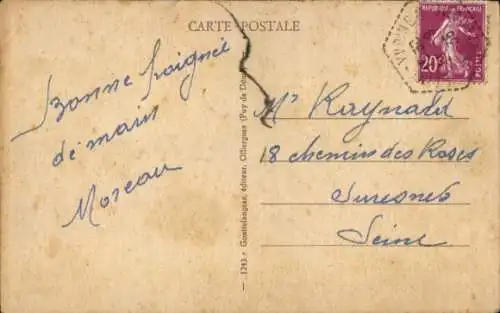 CARTE POSTALE
REPUBLIQUE FRANÇAISE
20c
POSTES
Bonne Poignée
de main
Moreau
Mr Raynald
18 chemin des Roses
Suresnes
Seine
— 1243. - Gouttefangeas, éditeur, Olliergues (Puy de Dôme)